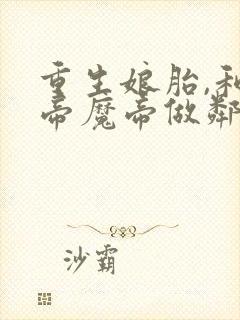 重生娘胎,和
帝魔帝做鄰
沙霸